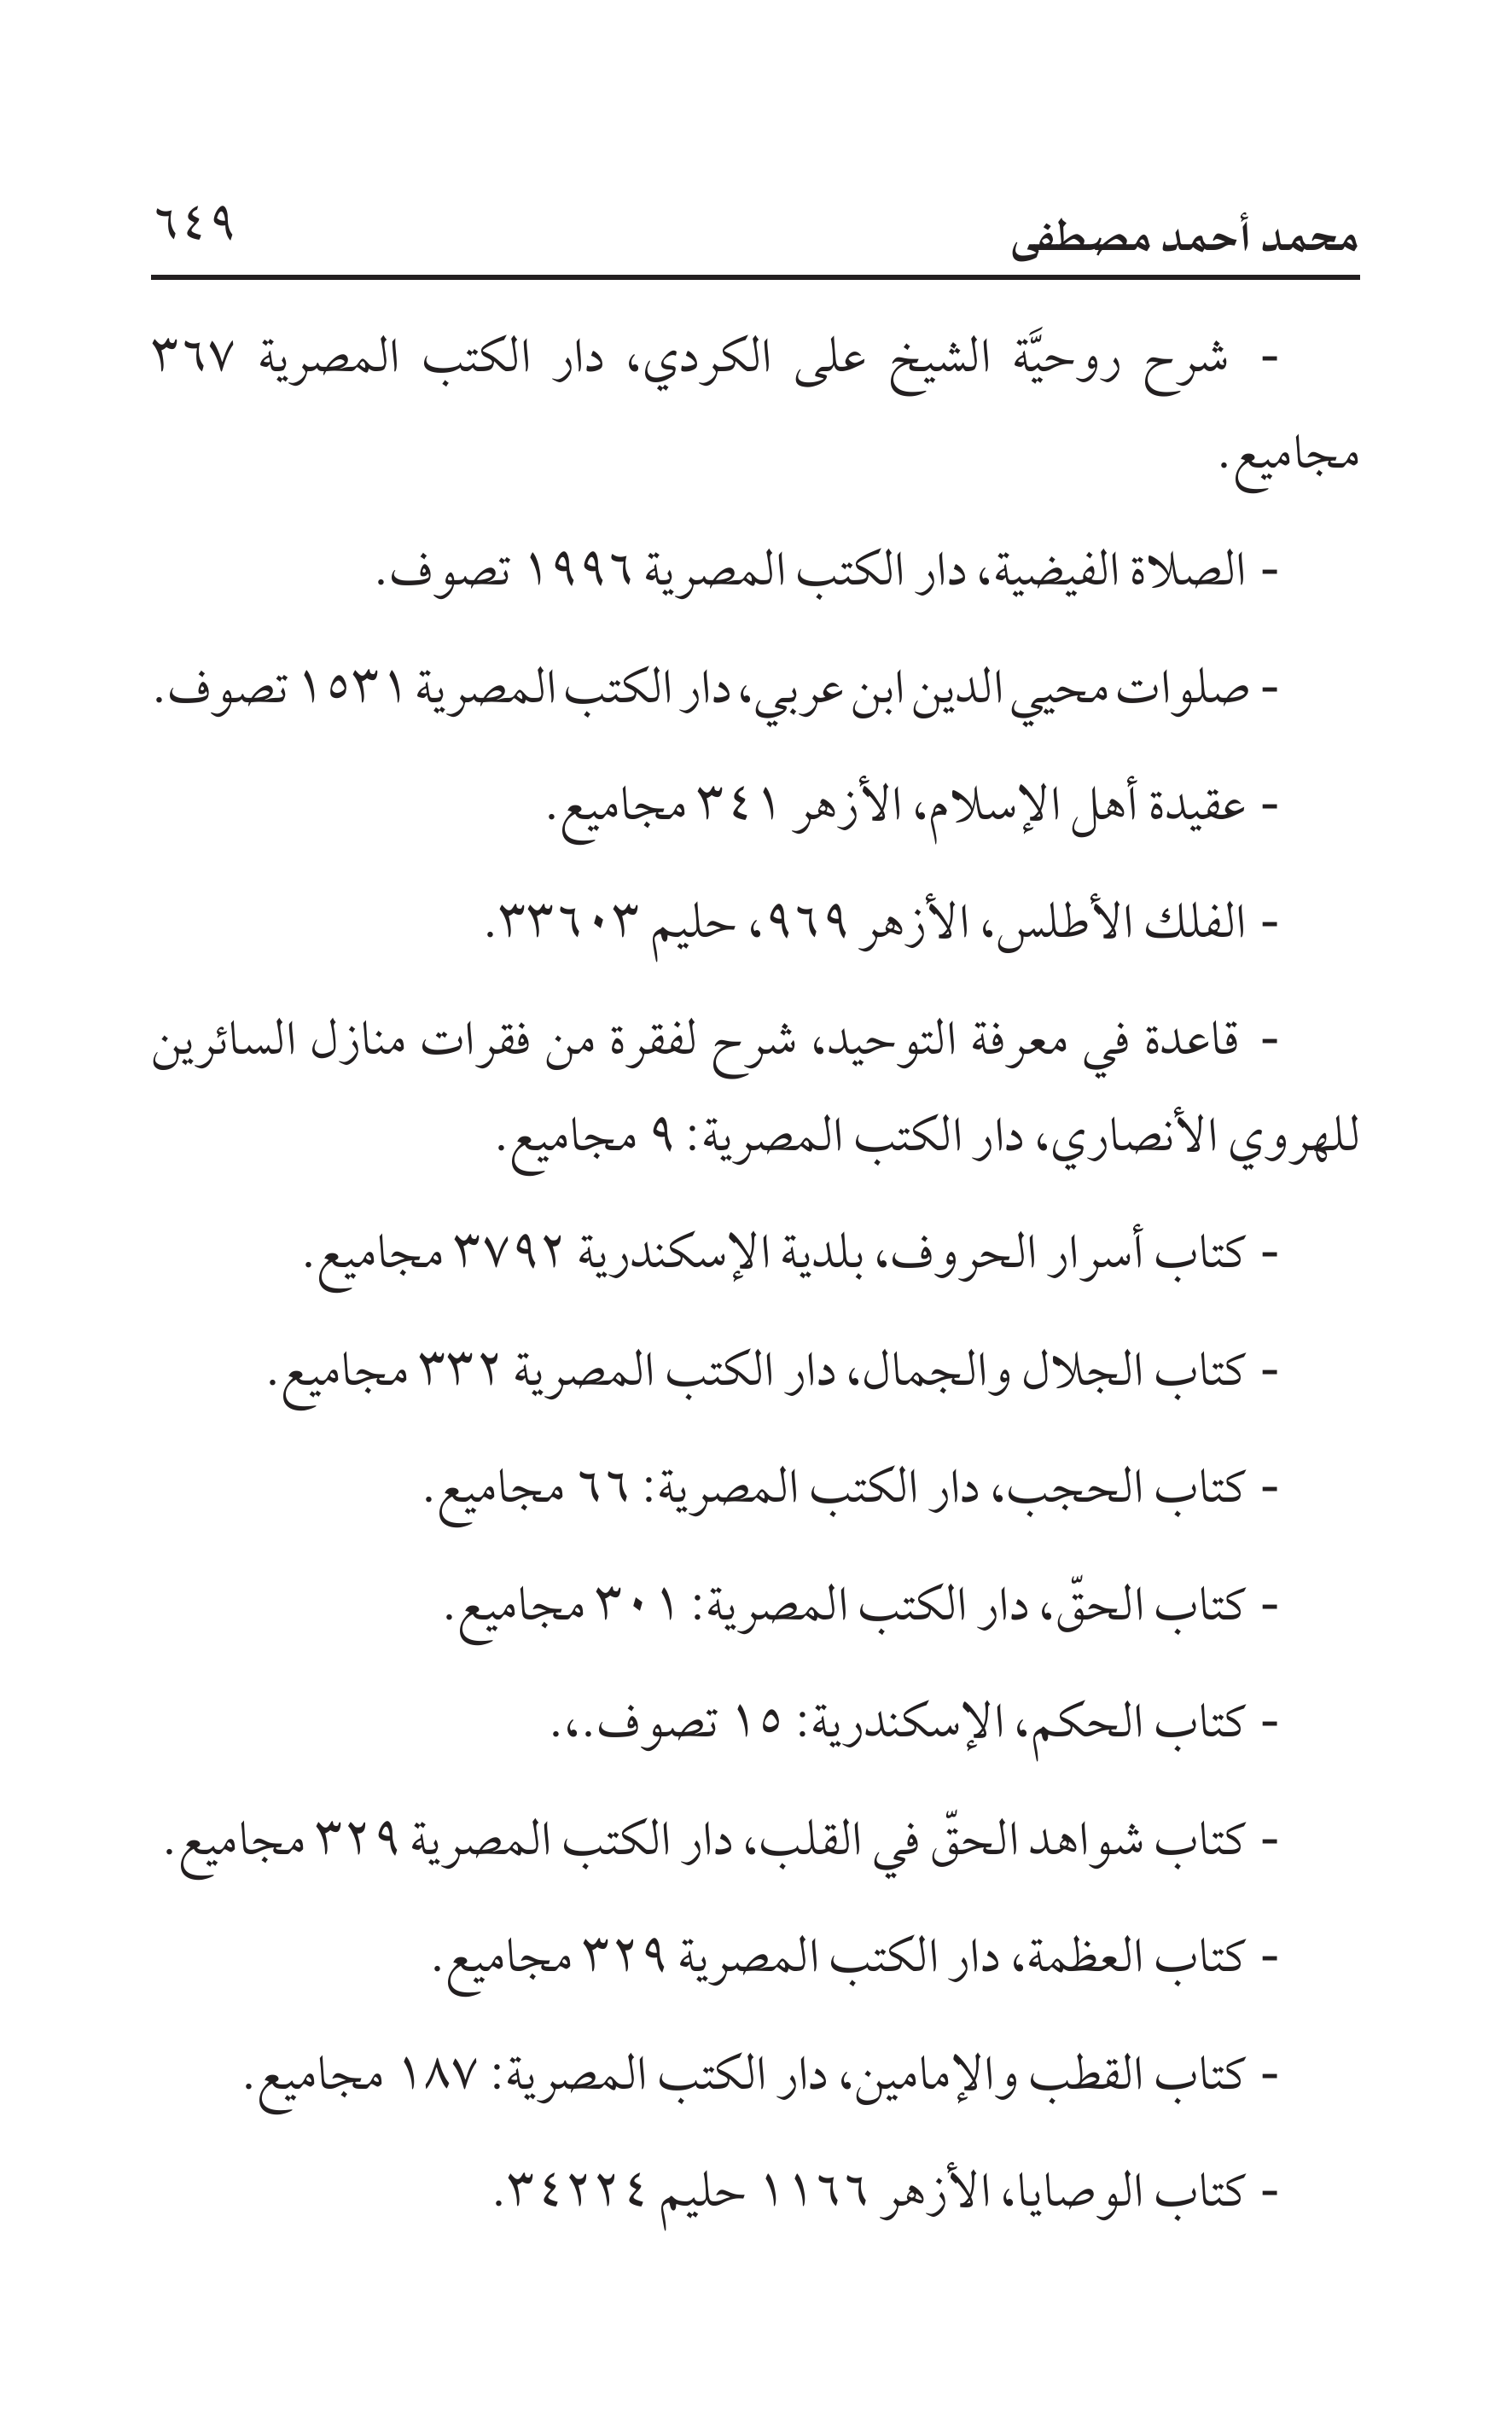 محمد أحمد مصطفى
٦٤٩
- شرح روحيَّة الشيخ على الكردي، دار الكتب المصرية ٣٦٧
مجاميع.
- الصلاة الفيضية، دار الكتب المصرية ١٩٩٦ تصوف.
- صلوات محيي الدين ابن عربي، دار الكتب المصرية ١٥٣١ تصوف.
- عقيدة أهل الإسلام، الأزهر ٣٤١ مجاميع.
- الفلك الأطلس، الأزهر ٩٦٩، حليم ٣٣٦٠٣.
- قاعدة في معرفة التوحيد، شرح لفقرة من فقرات منازل السائرين
للهروي الأنصاري، دار الكتب المصرية: ٩ مجاميع.
- كتاب أسرار الحروف، بلدية الإسكندرية ٣٧٩٢ مجاميع.
- كتاب الجلال والجمال، دار الكتب المصرية ٣٣٢ مجاميع.
- كتاب الحجب، دار الكتب المصرية: ٦٦ مجاميع.
- كتاب الحقّ، دار الكتب المصرية: ٣٠١ مجاميع.
- كتاب الحكم، الإسكندرية: ١٥ تصوف.،.
- كتاب شواهد الحقّ في القلب، دار الكتب المصرية ٣٢٩ مجاميع.
- كتاب العظمة، دار الكتب المصرية ٣٢٩ مجاميع.
- كتاب القطب والإمامين، دار الكتب المصرية: ١٨٧ مجاميع.
- كتاب الوصايا، الأزهر ١١٦٦ حليم ٣٤٢٢٤.